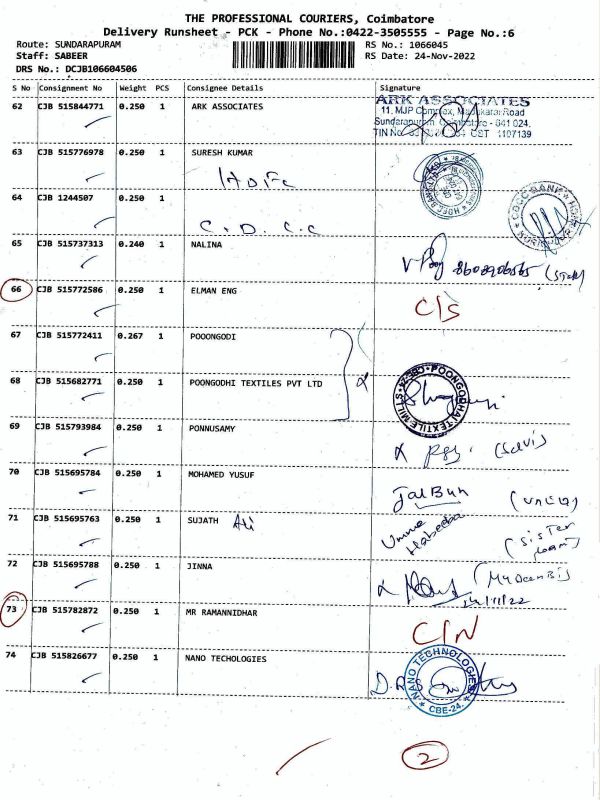 THE PROFESSIONAL COURIERS, Coimbatore
Delivery Runsheet - PCK - Phone No.:0422-3505555 - Page No.:6
Route: SUNDARAPURAM RS No.: 1066045
Staff: SABEER RS Date: 24-Nov-2022
DRS No.: DCJB106604506
S No Consignment No Weight PCS Consignee Details Signature
62 CJB 515844771 0.250 1 ARK ASSOCIATES ARK ASSOCIATES
11, MJP Complex, Madukarai Road
Sundarapuram, Coimbatore - 641 024.
TIN No CST 1107139
63 CJB 515776978 0.250 1 SURESH KUMAR
HDFC
64 CJB 1244507 0.250 1
C.D.C.C
65 CJB 515737313 0.240 1 NALINA
66 CJB 515772586 0.250 1 ELMAN ENG C/S
67 CJB 515772411 0.267 1 POOONGODI
68 CJB 515682771 0.250 1 POONGODHI TEXTILES PVT LTD
69 CJB 515793984 0.250 1 PONNUSAMY (Selvi)
70 CJB 515695784 0.250 1 MOHAMED YUSUF
71 CJB 515695763 0.250 1 SUJATH Ali Umma Habeeba (Sister
72 CJB 515695788 0.250 1 JINNA
24/11/22
73 CJB 515782872 0.250 1 MR RAMANNIDHAR C/N
74 CJB 515826677 0.250 1 NANO TECHOLOGIES NANO TECHNOLOGIES
CBE-24.
2